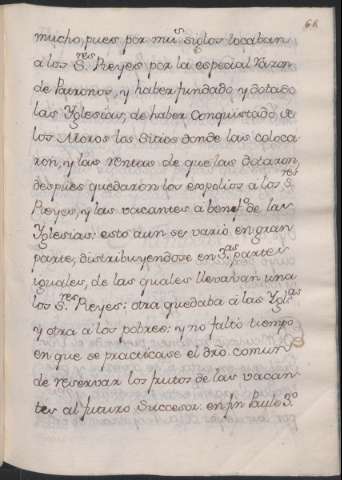 68
mucho, pues por mu.s siglos tocaban
a los S.res Reyes por la especial razon
de Patronos, y haber fundado y dotado
las Yglesias, de haber conquistado â
los Moros los Sitios donde las coloca
ron, y las rentas de que las dotaron
despues quedaron los espolios a los S.res
Reyes, y las vacantes à benef.o de las
Yglesias: esto aun se varió en gran
parte, distribuyendose en 3.as partes
iguales, de las quales llevaban una
los S.res Reyes: otra quedaba á las Ygl.as
y otra a los pobres: y no faltó tiempo
en que se practicase el dro comun
de reservar los frutos de las vacan
tes al futuro Succesor: en fin Paulo 3.o